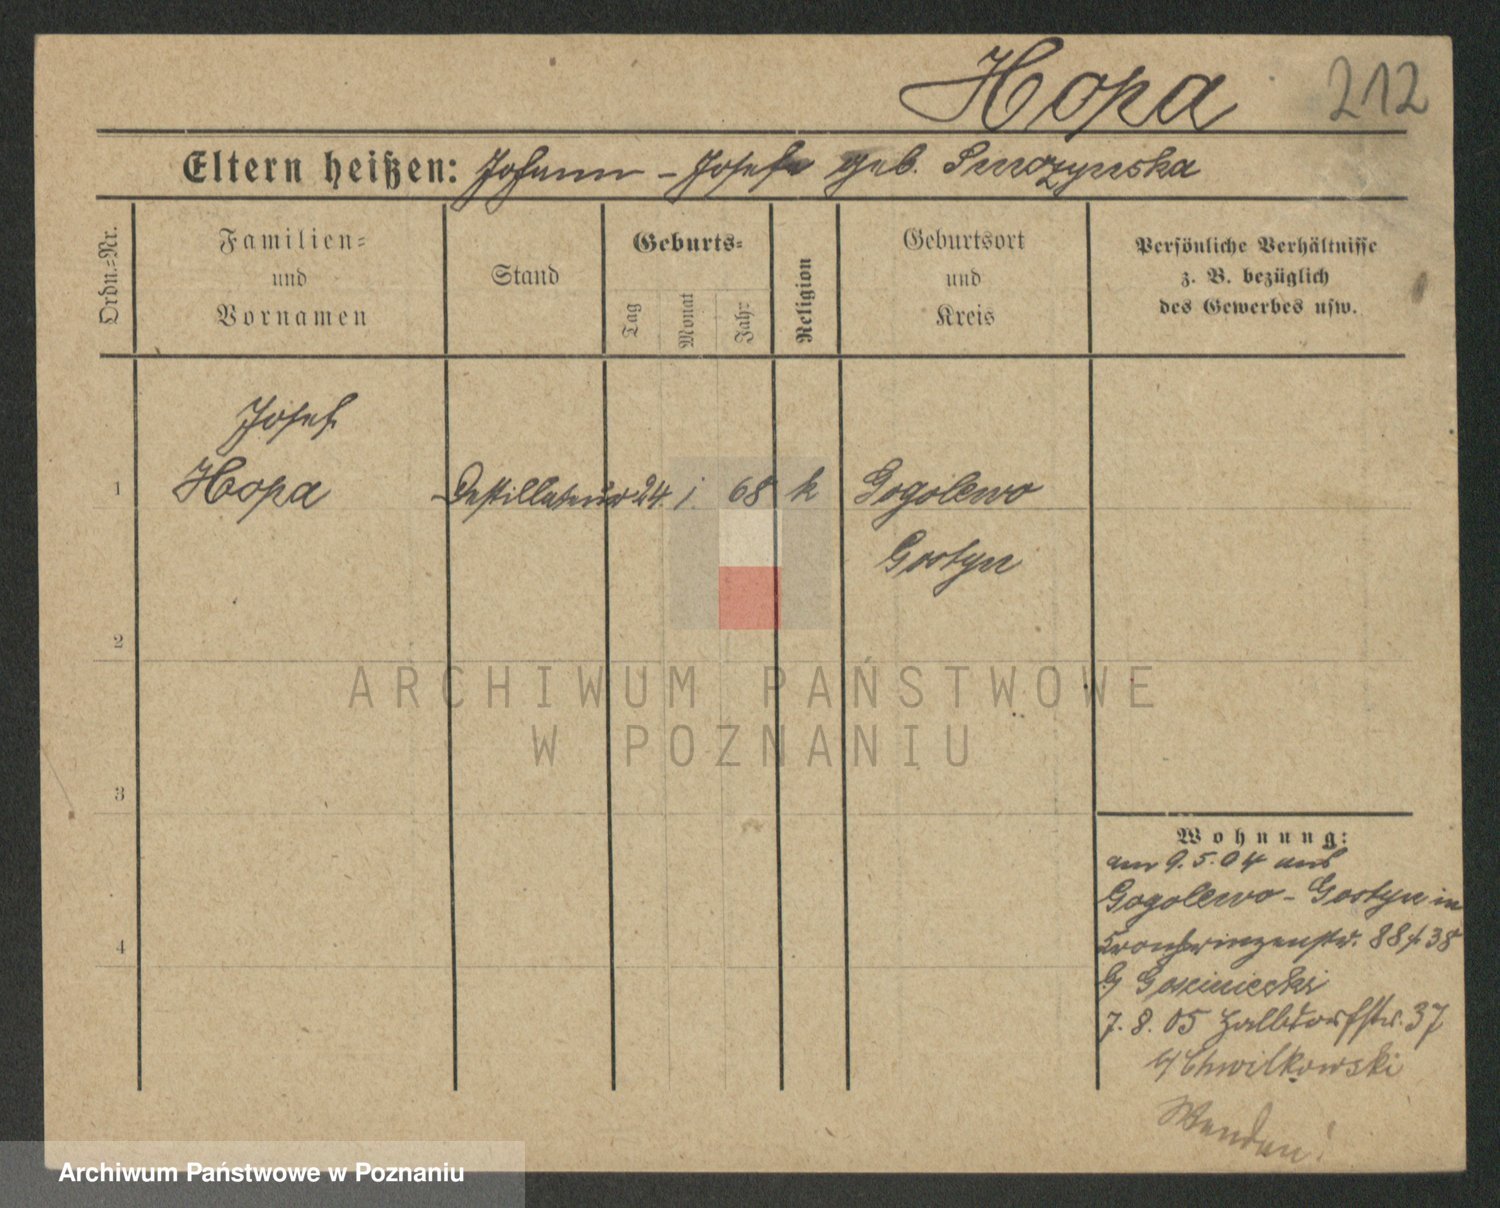 Hopa 212
Eltern heißen: Johann - Josefa geb. Smozynska
Ordn.=Nr.
Familien=
und
Vornamen
Stand
Geburts=
Tag
Monat
Jahr
Religion
Geburtsort
und
Kreis
Persönliche Verhältnisse
z. B. bezüglich
des Gewerbes usw.
Josef
1 Hopa Destillateur 24. 1. 68 k Gogolewo
Gostyn
2
3
4
Wohnung:
am 9.5.04 aus
Gogolewo - Gostyn in
Kronprinzenstr. 88 38
b/
7. 8. 05 Halbdorfstr. 37
b/ Chwilkowski
Wenden!
ARCHIWUM PAŃSTWOWE
W POZNANIU
Archiwum Państwowe w Poznaniu